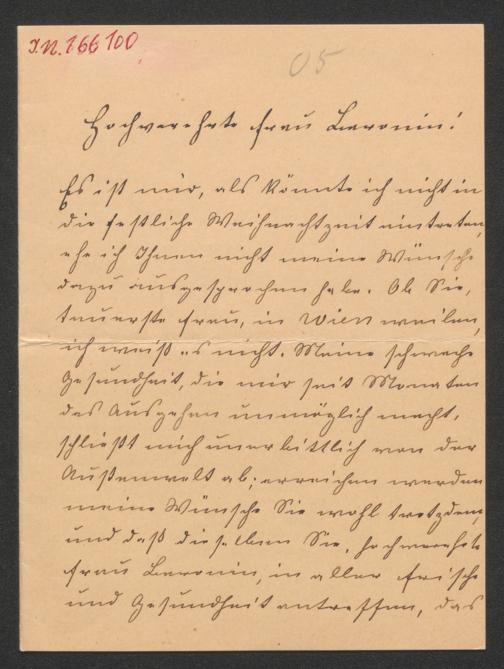 J.N. 166100
05
Hochverehrte Frau Baronin!
Es ist mir, als könnte ich nicht in
die festliche Weihnachtzeit eintreten,
ehe ich Ihnen nicht meine Wünsche
dazu ausgesprochen habe. Ob Sie,
teuerste Frau, in Wien weilen,
ich weiß es nicht. Meine schwache
Gesundheit, die mir seit Monaten
das Ausgehen unmöglich macht,
schließt mich unerbittlich von der
Außenwelt ab; erreichen werden
meine Wünsche Sie wohl trotzdem,
und daß dieselben Sie, hochverehrte
Frau Baronin, in aller Frische
und Gesundheit antreffen, das